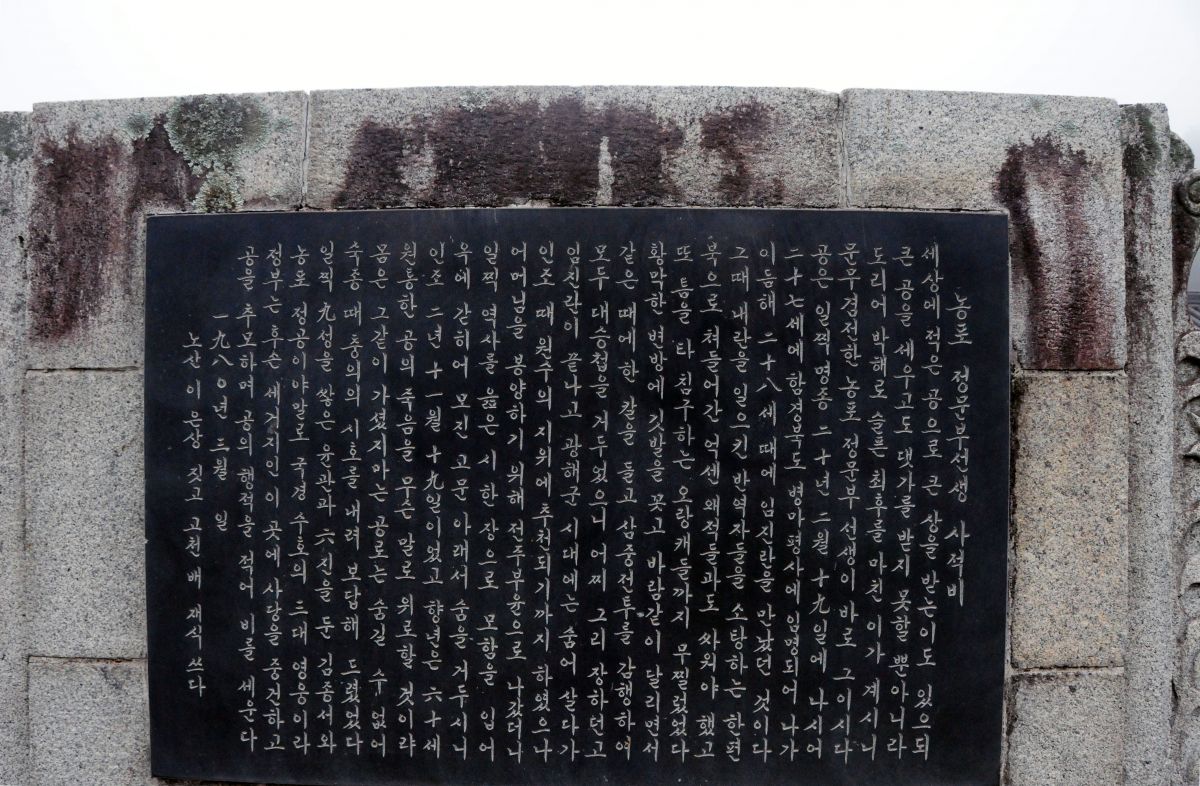 농포 정문부선생 사적비
세상에 적은 공으로 큰 상을 받은이도 있으되
큰 공을 세우고도 댓가를 받지 못할 뿐아니라
도리어 박해로 슬픈 최후를 마친 이가 계시니
문무겸전한 농포 정문부 선생이 바로 그이시다
공은 일찍 명종 二十년 二월 十九일에 나시어
二十七세에 함경북도 병마평사에 임명되어 나가
이듬해 二十八세 때에 임진란을 만났던 것이다
그때 내란을 일으킨 반역자들을 소탕하는 한편
북으로 쳐들어간 억센 왜적들과도 싸워야 했고
또 틈을 타 침구하는 오랑캐들까지 무찔렀었다
황막한 변방에 깃발을 꽂고 바람같이 달리면서
같은 때에 한 칼을 들고 삼중전투를 감행하여
모두 대승첩을 거두었으니 어찌 그리 장하던고
임진란이 끝나고 광해군 시대에는 숨어 살다가
인조 때 원수의 지위에 추천되기까지 하였으나
어머님을 봉양하기 위해 전주부윤으로 나갔더니
일찍 역사를 읊은 시 한 장으로 모함을 입어
옥에 갇히어 모진 고문 아래서 숨을 거두시니
인조 二년 十一월 十九일이었고 향년은 六十세
원통한 공의 죽음을 무슨 말로 위로할 것이랴
몸은 그같이 가셨지마는 공로는 숨길 수 없어
숙종 때 충의의 시호를 내려 보답해 드렸었다
일찍 九성을 쌓은 윤관과 六진을 둔 김종서와
농포 정공이야말로 국경 수호의 三대 영웅이라
정부는 후손 세거지인 이 곳에 사당을 중건하고
공을 추모하며 공의 행적을 적어 비를 세운다
一九八0년 三월 일
노산 이은상 짓고 고천 배재식 쓰다